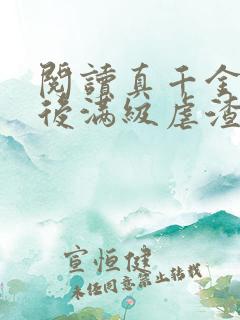 閱讀真千金
後滿級虐渣
宣恒健
未经同意禁止转载